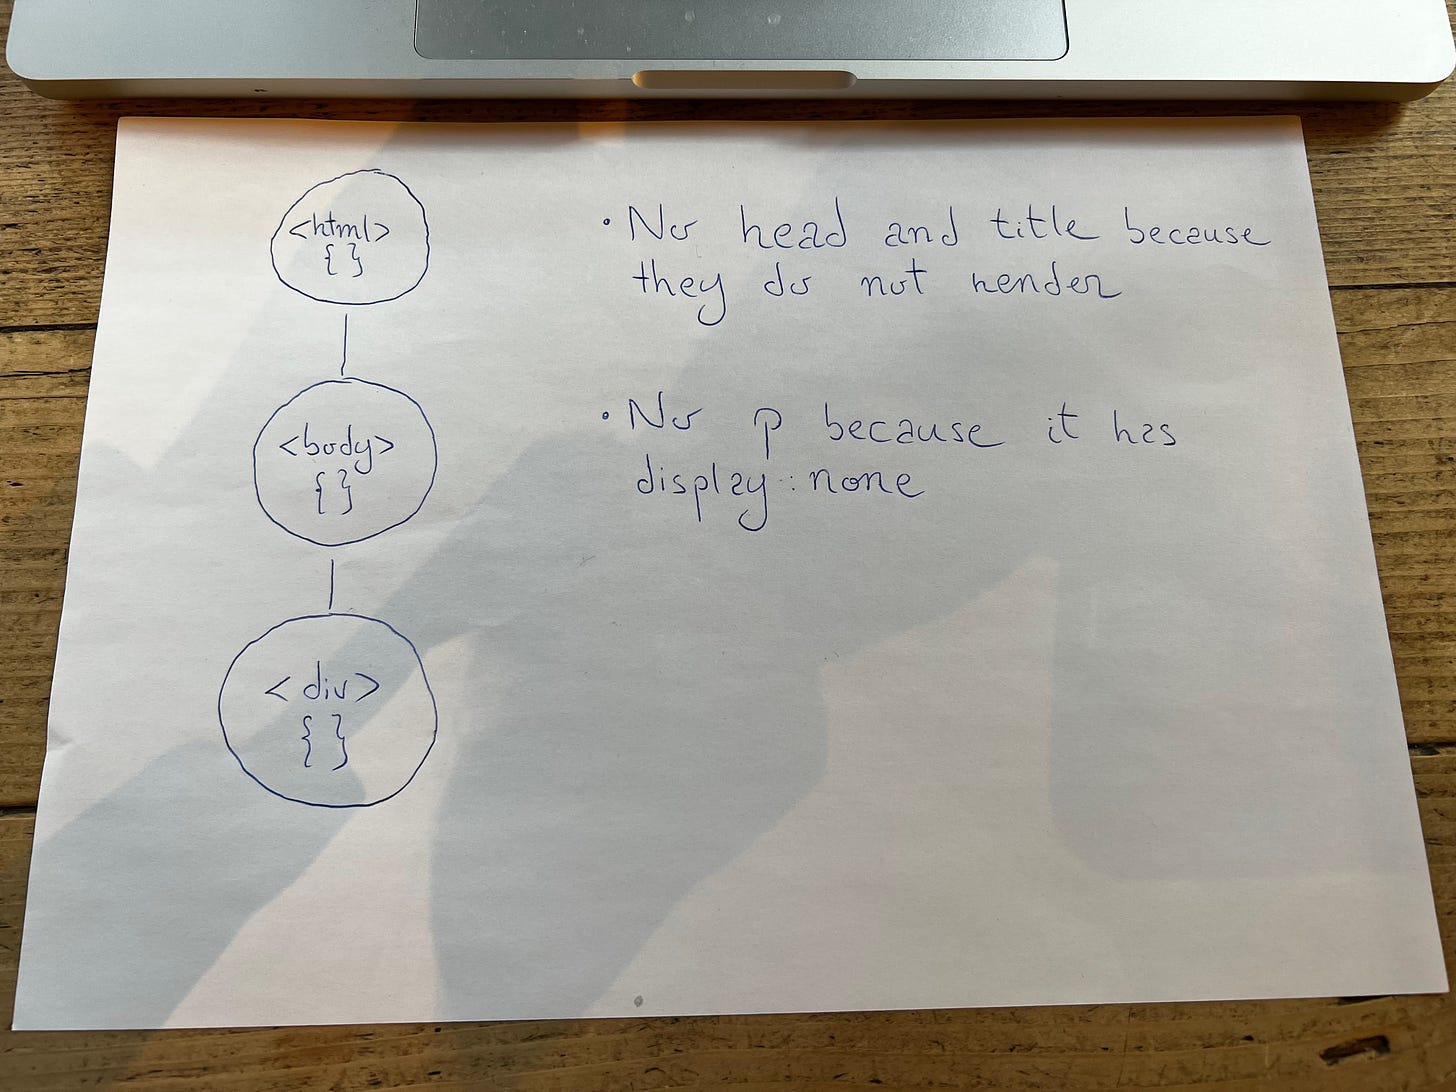 <html>
{ }
<body>
{ }
<div>
{ }
• No head and title because
they do not render
• No p because it has
display: none